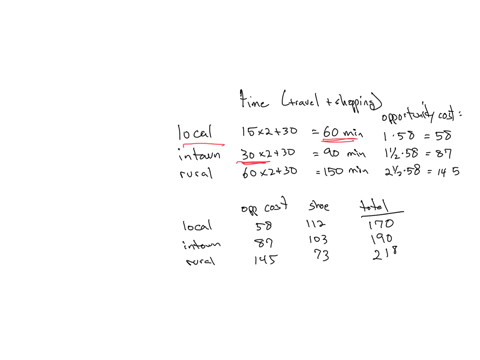 time (travel + shopping)
opportunity cost:
local 15×2+30 = 60 min 1·58 = 58
intown 30×2+30 = 90 min 1½·58 = 87
rural 60×2+30 = 150 min 2½·58 = 145
opp cost shoe total
local 58 112 170
intown 87 103 190
rural 145 73 218